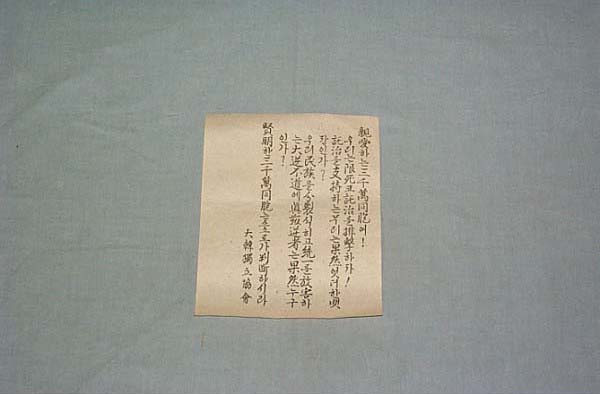 親愛하는三千萬同胞여!
우리는限死코託治를排擊하자!
託治를支持하는무리는果然엇더한
장인가?
우리民族을分裂식히고統一을放害하
는大逆不道에眞叛逆者는果然누구
인가?
賢明한三千萬同胞는스스로가判斷하시라
大韓獨立協會